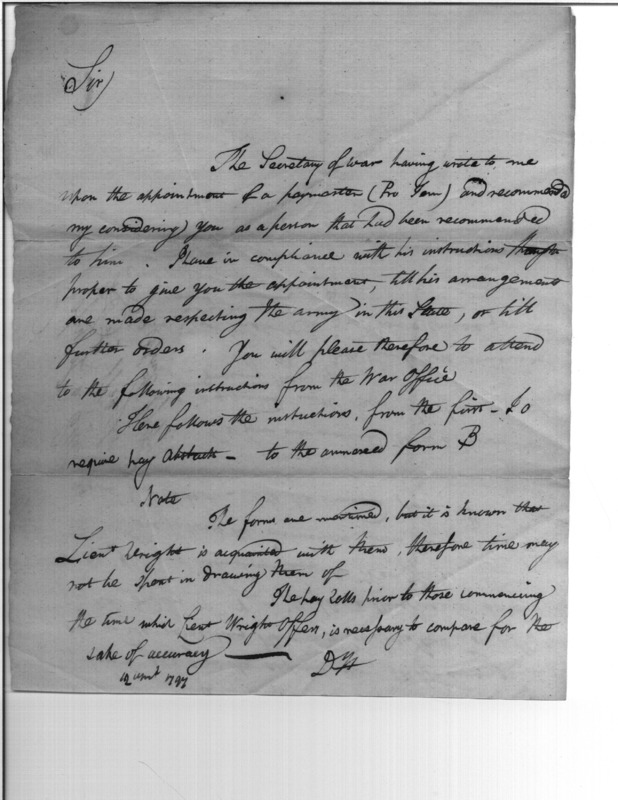 Sir
The Secretary of war having wrote to me
upon the appointment of a paymaster (Pro Tem) and recommend'd
my considering you as a person that had been recommended
to him. I have in compliance with his instructions
proper to give you the appointment, till his arrangements
are made respecting the army in this State, or till
further orders. You will please therefore to attend
to the following instructions from the War Office
Here follows the instructions, from the first – To
require pay Abstracts – to the annexed form B
Note
The forms are mentioned, but it is known that
Lieut Wright is acquainted with them, therefore time may
not be spent in drawing them of
The pay Rolls prior to those commencing
the time which Lieut Wright Offers, is necessary to compare for the
sake of accuracy —
1797